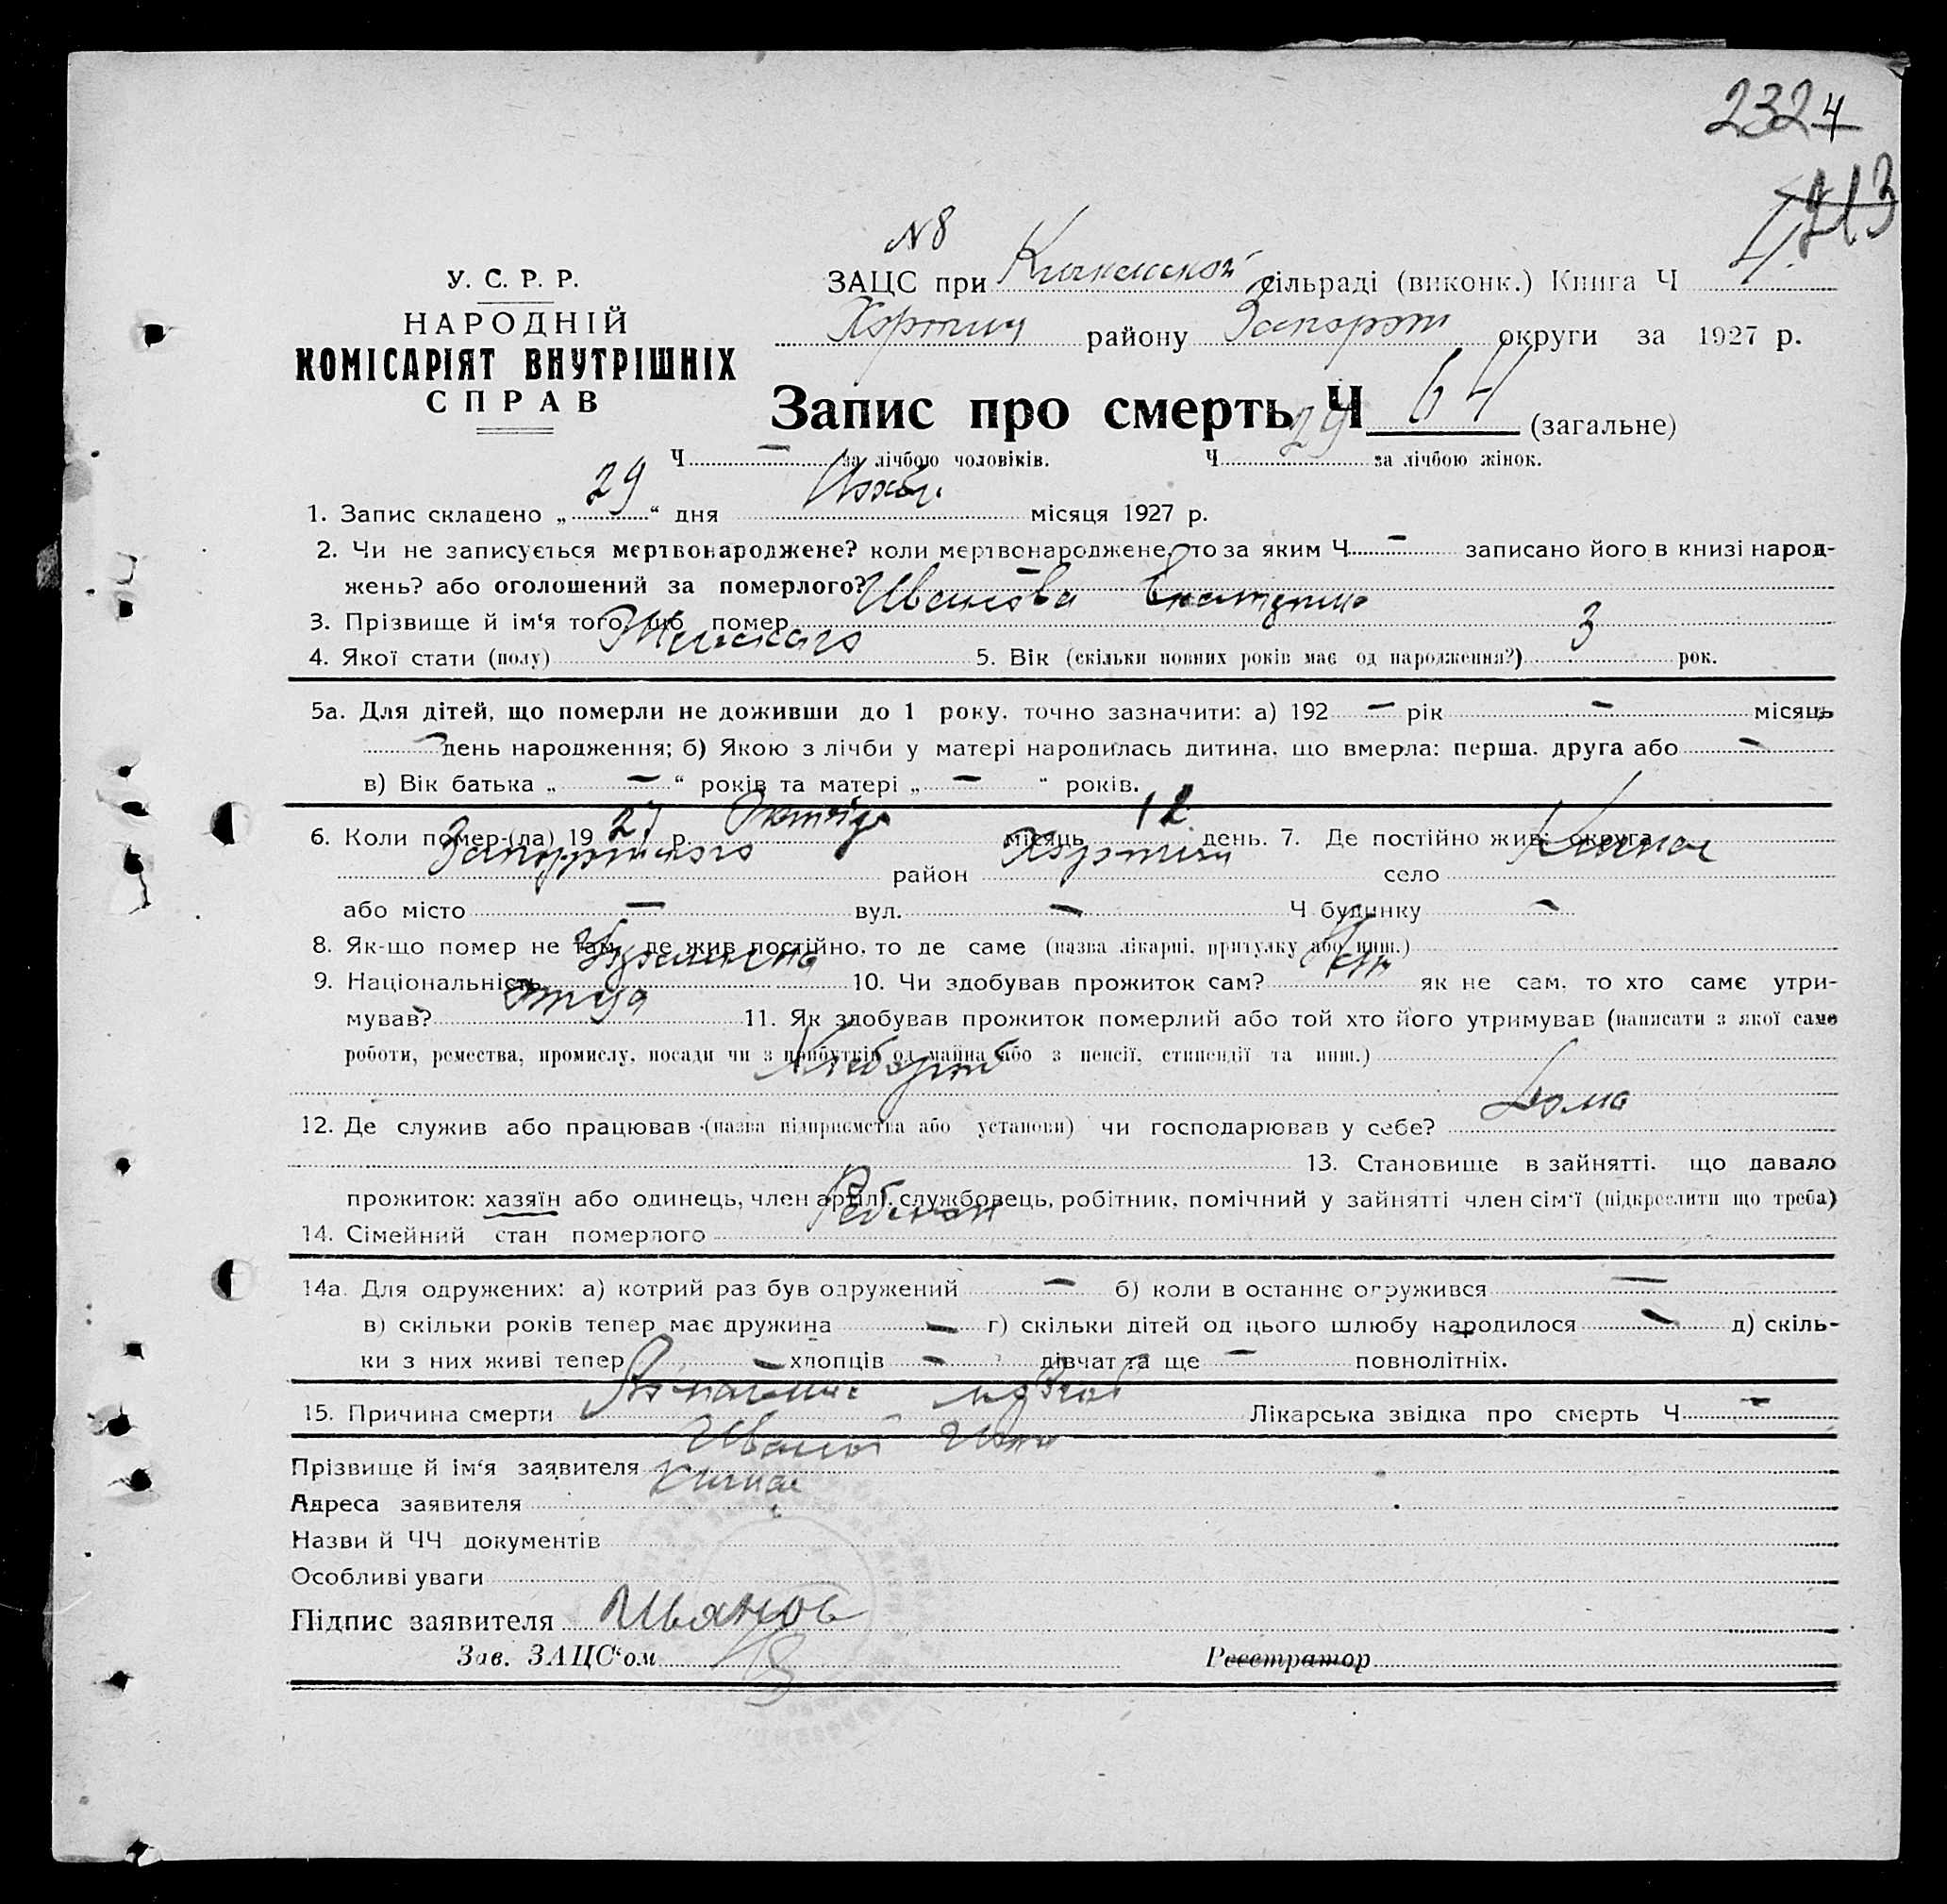 2324
N8
У. С. Р. Р.
ЗАЦС при Кичкаской сільраді (виконк.) Книга Ч
НАРОДНІЙ
Хортиц району Запорож округи за 1927 р.
КОМІСАРІЯТ ВНУТРІШНІХ
СПРАВ
Запис про смерть Ч 64 (загальне)
Ч — за лічбою чоловіків. Ч 29 за лічбою жінок.
1. Запис складено „29“ дня місяця 1927 р.
2. Чи не записується мертвонароджене? коли мертвонароджене, то за яким Ч — записано його в книзі народ-
жень? або оголошений за померлого? —
3. Прізвище й ім'я того, що помер Иванова Екатерина
4. Якої стати (полу) Женского 5. Вік (скільки повних років має од народження?) 3 рок.
5а. Для дітей, що померли не доживши до 1 року, точно зазначити: а) 192 — рік — місяць
— день народження; б) Якою з лічби у матері народилась дитина, що вмерла: перша, друга або —
в) Вік батька „ — “ років та матері „ — “ років.
6. Коли помер-(ла) 1927 р. Октября місяць 12 день. 7. Де постійно жив: округа
Запорожского район Хортиц село Кичкас
або місто — вул. — Ч будинку —
8. Як-що помер не там, де жив постійно, то де саме (назва лікарні, притулку або инш.)
9. Національність Украинка 10. Чи здобував прожиток сам? Нет як не сам, то хто саме утри-
мував? отец 11. Як здобував прожиток померлий або той хто його утримував (написати з якої саме
роботи, ремества, промислу, посади чи з прибутків од майна або з пенсії, стипендії та инш.)
Хлебороб
12. Де служив або працював (назва підприємства або установи) чи господарював у себе? Дома
13. Становище в зайнятті, що давало
прожиток: хазяїн або одинець, член артілі, службовець, робітник, помічний у зайнятті член сім'ї (підкреслити що треба)
14. Сімейний стан померлого Ребенок
14а. Для одружених: а) котрий раз був одружений — б) коли в останнє одружився —
в) скільки років тепер має дружина — г) скільки дітей од цього шлюбу народилося — д) скіль-
ки з них живі тепер — хлопців — дівчат та ще — повнолітніх.
15. Причина смерти Лікарська звідка про смерть Ч —
Прізвище й ім'я заявителя Иванов
Адреса заявителя Кичкас
Назви й ЧЧ документів
Особливі уваги
Підпис заявителя Иванов
Зав. ЗАЦС'ом
Реєстратор